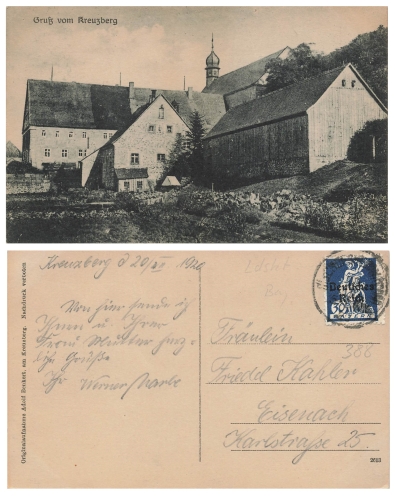 Gruß vom Kreuzberg
Kreuzberg d 20/VI 1920
Von hier sende ich
Ihnen u Ihrer
Frau Mutter herz-
liche Grüße
Ihr
Originalaufnahme Adolf Neubert, am Kreuzberg. Nachdruck verboten
Deutsches
Reich
30
386
Fräulein
Friedel Kahler
Eisenach
Karlstraße 25.